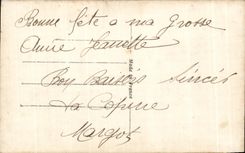 Bonne fête a ma grosse
Amie Jeanette
Bon Baisers Sincès
La Copine
Margot